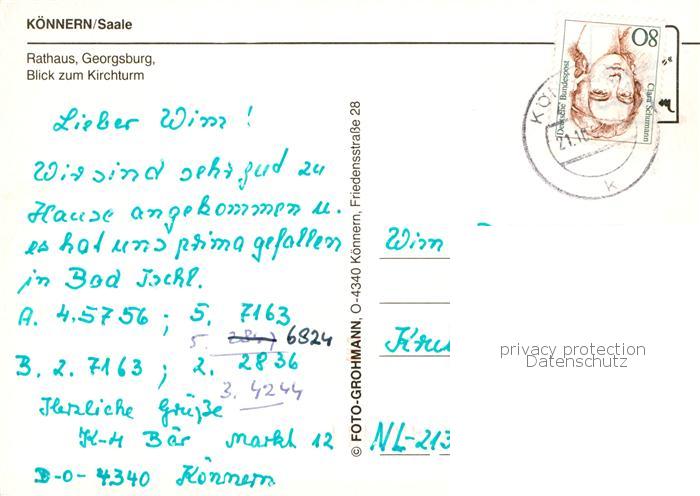 KÖNNERN/Saale
Rathaus, Georgsburg,
Blick zum Kirchturm
Lieber Wim !
Wir sind sehr gut zu
Hause angekommen u.
es hat uns prima gefallen
in Bad Ischl.
A. 4.5756 ; 5. 7163
5. 6824
B. 2. 7163 ; 2. 2836
3. 4244
Herzliche Grüße
K-H Bär Markt 12
D-O-4340 Könnern
© FOTO-GROHMANN, O-4340 Könnern, Friedensstraße 28
80
Deutsche Bundespost
Clara Schumann
KÖ
21.10
k
Wim
NL-213
privacy protection
Datenschutz